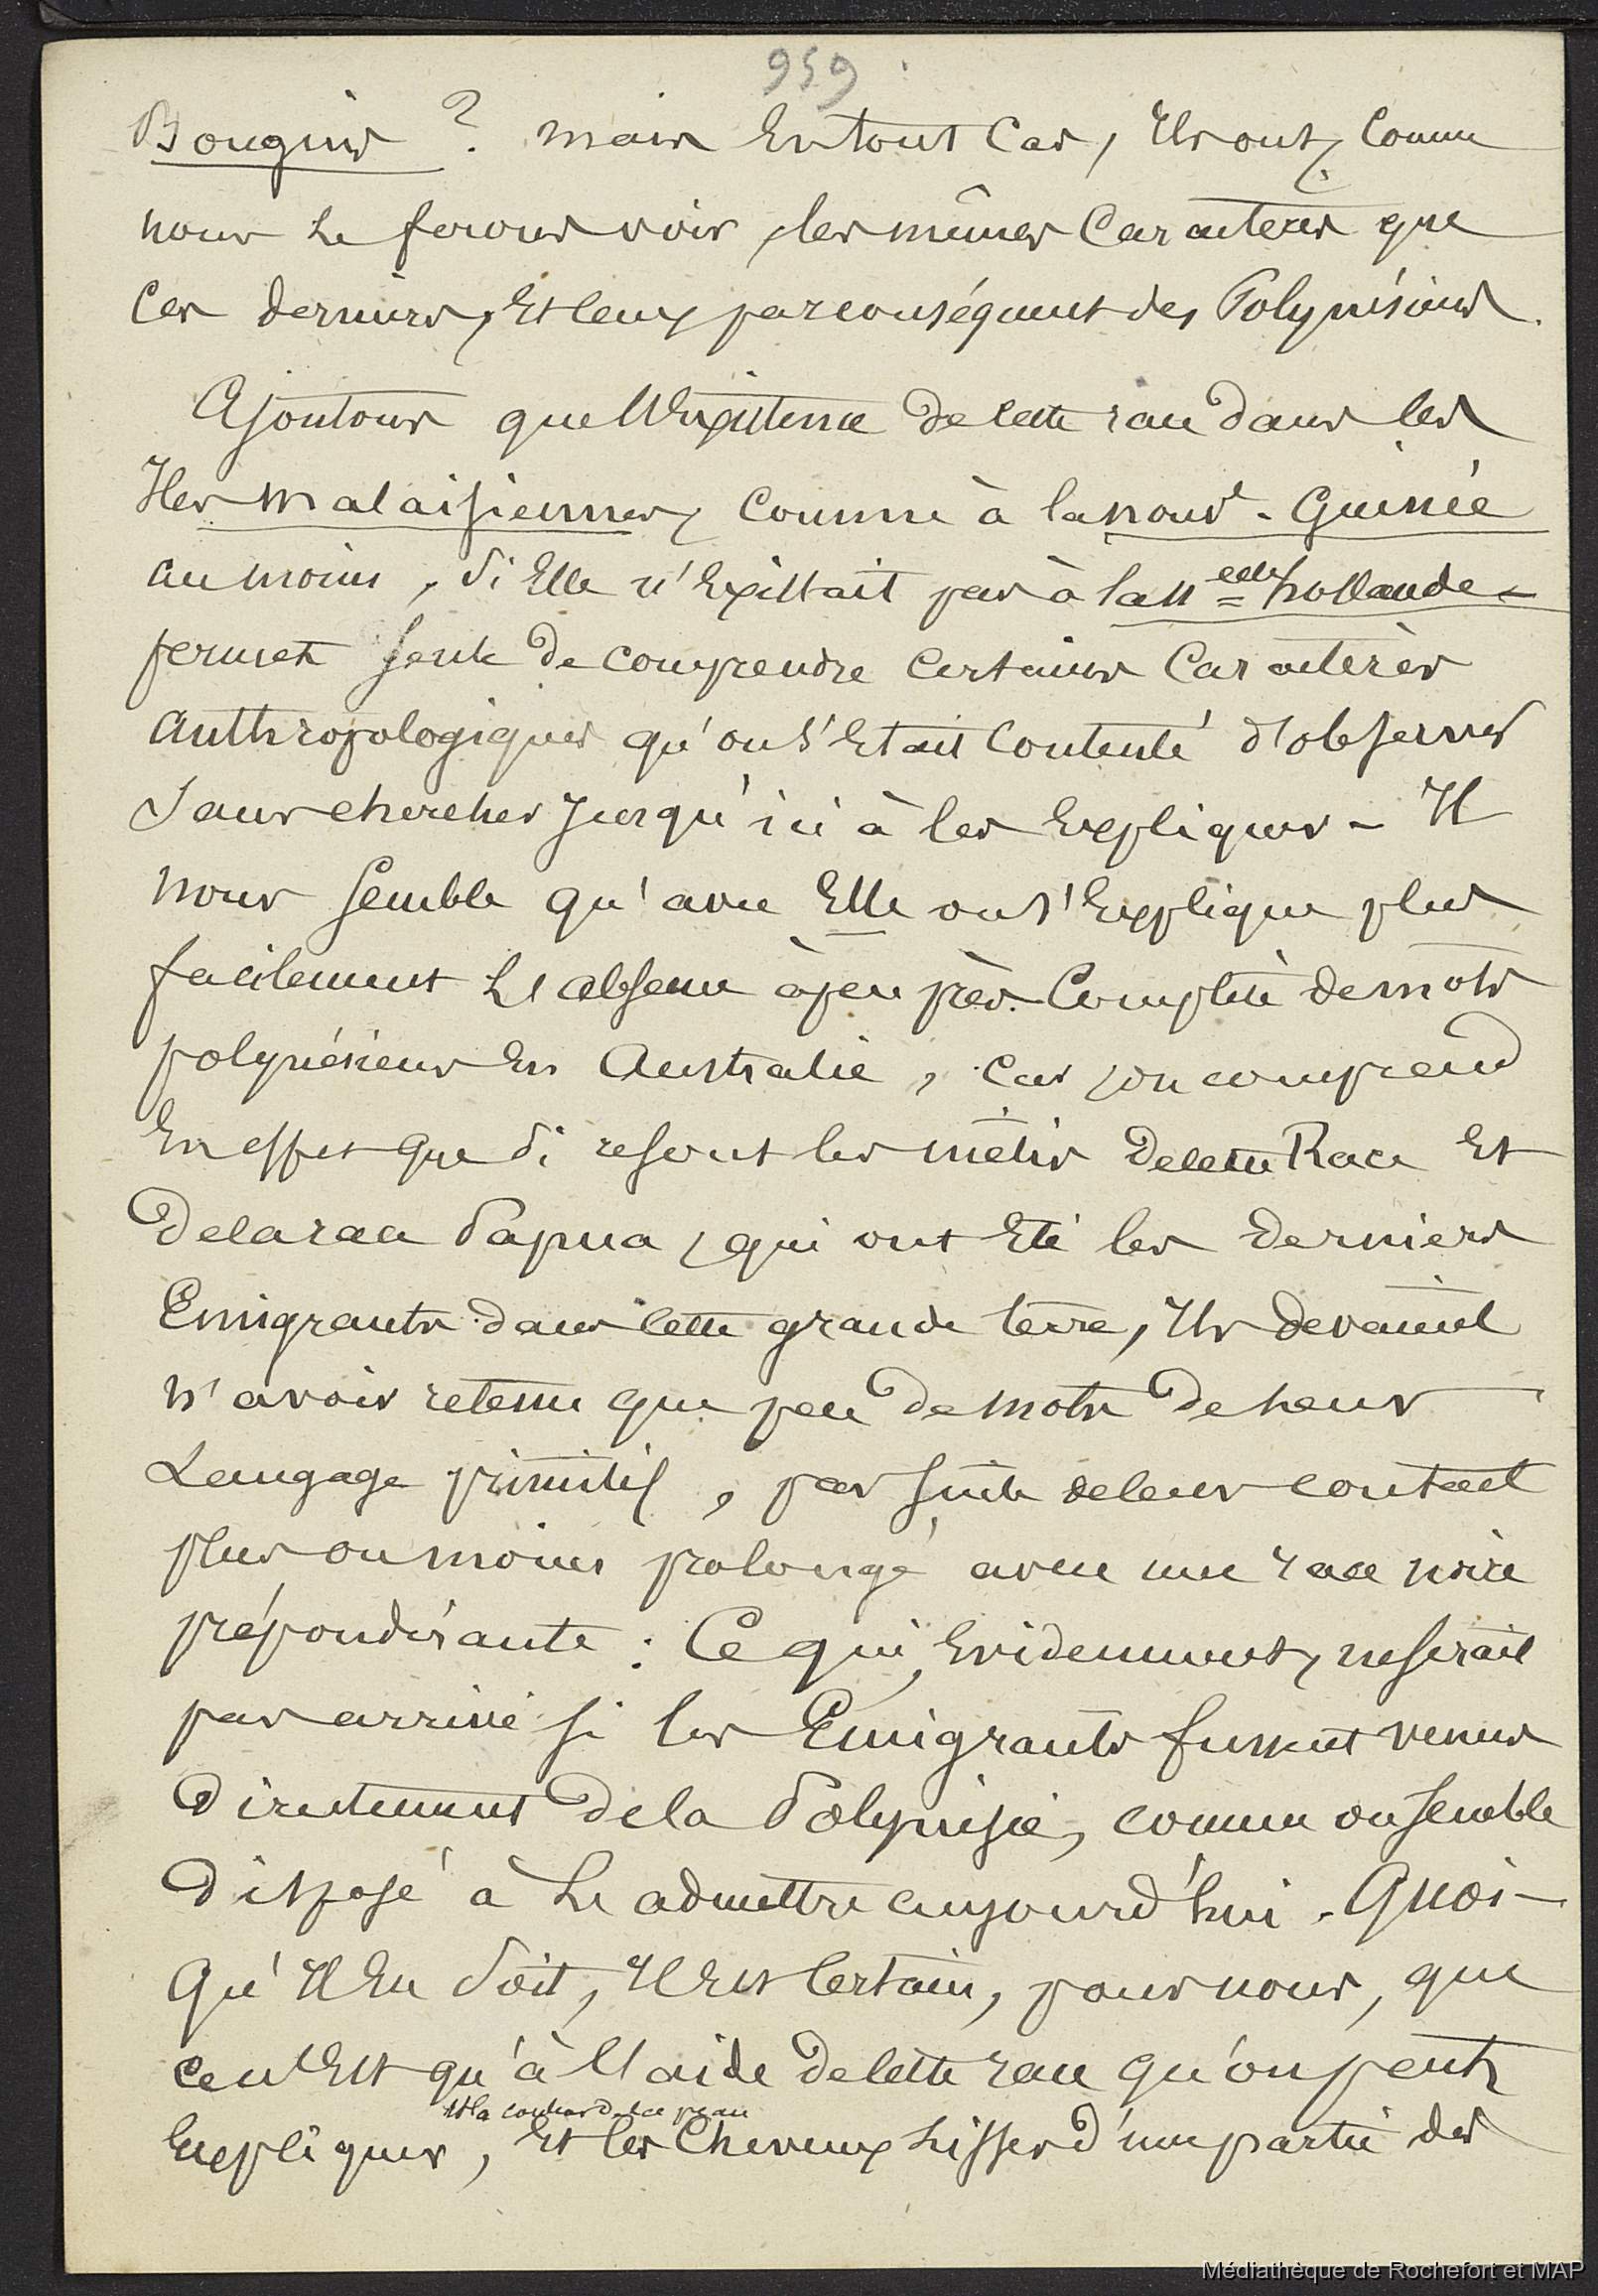 959
Bouguis ? mais En tout Cas, Ils ont, Comme
nous Le ferons voir, les mêmes Caractères que
Ces derniers, Et ceux par conséquent des Polynésiens.
Ajoutons que L'Existence de cette race dans les
Iles Malaisiennes, comme à la nouv. Guinée
au moins, si Elle n'Existait pas à la Nelle hollande -
permet seule de comprendre Certains Caractères
anthropologiques qu'on s'était Contenté d'observer
sans chercher Jusqu'ici à les Expliquer - Il
nous semble qu'avec Elle on s'Explique plus
facilement L'absence à peu près Complète de mots
polynésiens En Australie, Car, on comprend
En effet que si ce sont les métis de cette Race Et
de la race Papua, qui ont Eté les derniers
Emigrants dans cette grande terre, Ils devaient
n'avoir retenu que peu de mots de Leur
Langage primitif, par suite de leur contact
plus ou moins prolongé avec une race noire
prépondérante : Ce qui, Evidemment, ne serait
pas arrivé si les Emigrants fussent venus
Directement de la Polynésie, comme on semble
Disposé à Le admettre aujourd'hui. Quoi-
qu'Il En soit, Il Est Certain, pour nous, que
ce n'Est qu'à L'aide de cette race qu'on peut,
Et la couleur de la peau
Expliquer, Et les Cheveux Lisses d'une partie des
Médiathèque de Rochefort et MAP